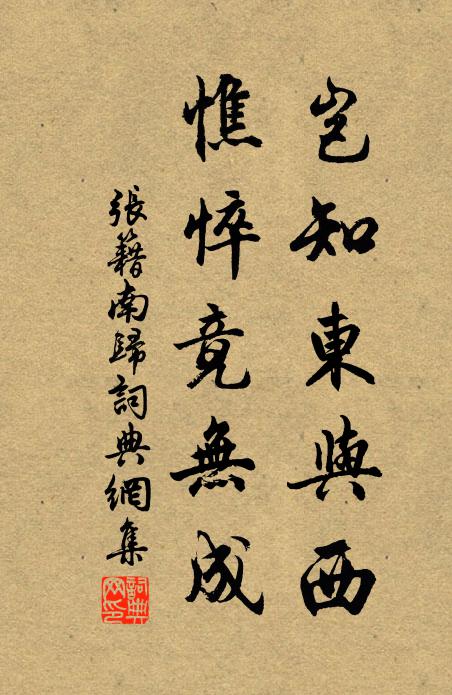 豈知東與西
憔悴竟無成
張籍南歸詞典網集
詞典网印